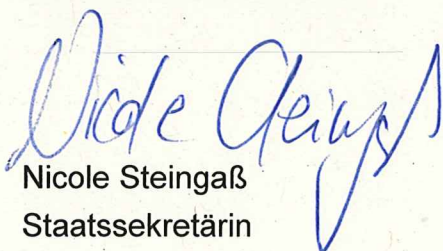 Nicole Steingaß
Nicole Steingaß
Staatssekretärin